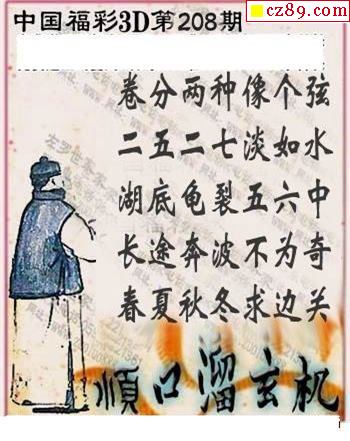 cz89.com
中国福彩3D第208期
卷分两种像个弦
二五二七淡如水
湖底龟裂五六中
长途奔波不为奇
春夏秋冬求边关
顺口溜玄机